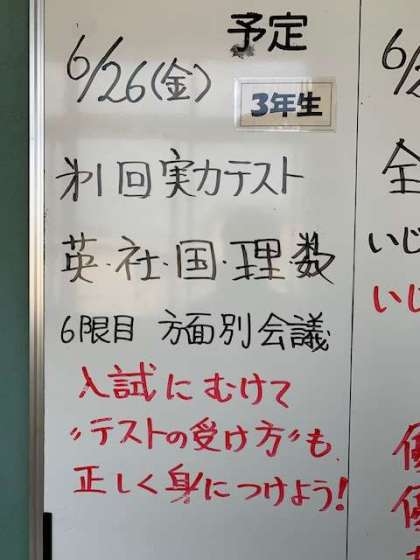 予定
6/26(金)
3年生
才1回実力テスト
英・社・国・理・数
6限目 方面別会議
入試にむけて
〃テストの受け方〃も
正しく身につけよう!
6/2
全
いじ
いじ
優
優